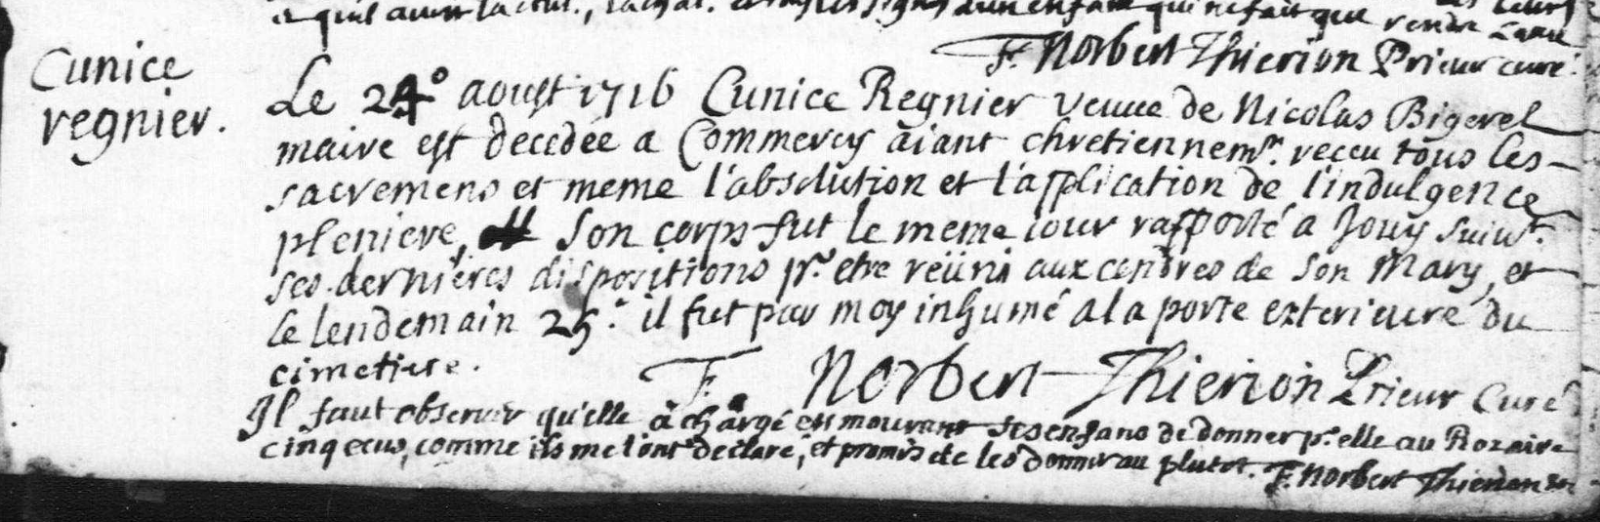 et qu'il avoit la qui ne fait que rendre l'ame
F. Norbert Thierion Prieur curé.
Cunice
regnier.
Le 24° aoust 1716 Cunice Regnier veuve de Nicolas Bigerel
maire est decedée a Commercy aiant chretiennemt. receu tous les
sacremens et meme l'absolution et l'application de l'indulgence
pleniere, son corps fut le meme iour rapporté a Jouy suivt.
ses dernieres dispositions pr. etre reüni aux cendres de son Mary, et
le lendemain 25. il fut par moy inhumé a la porte exterieure du
cimetiere.
F. Norbert Thierion Prieur Curé
Il faut observer qu'elle a chargé en mourant ses enfans de donner pr. elle au Rozaire
cinq ecus, comme ils me l'ont declaré, et promis de les donner au plutot. F. Norbert Thierion